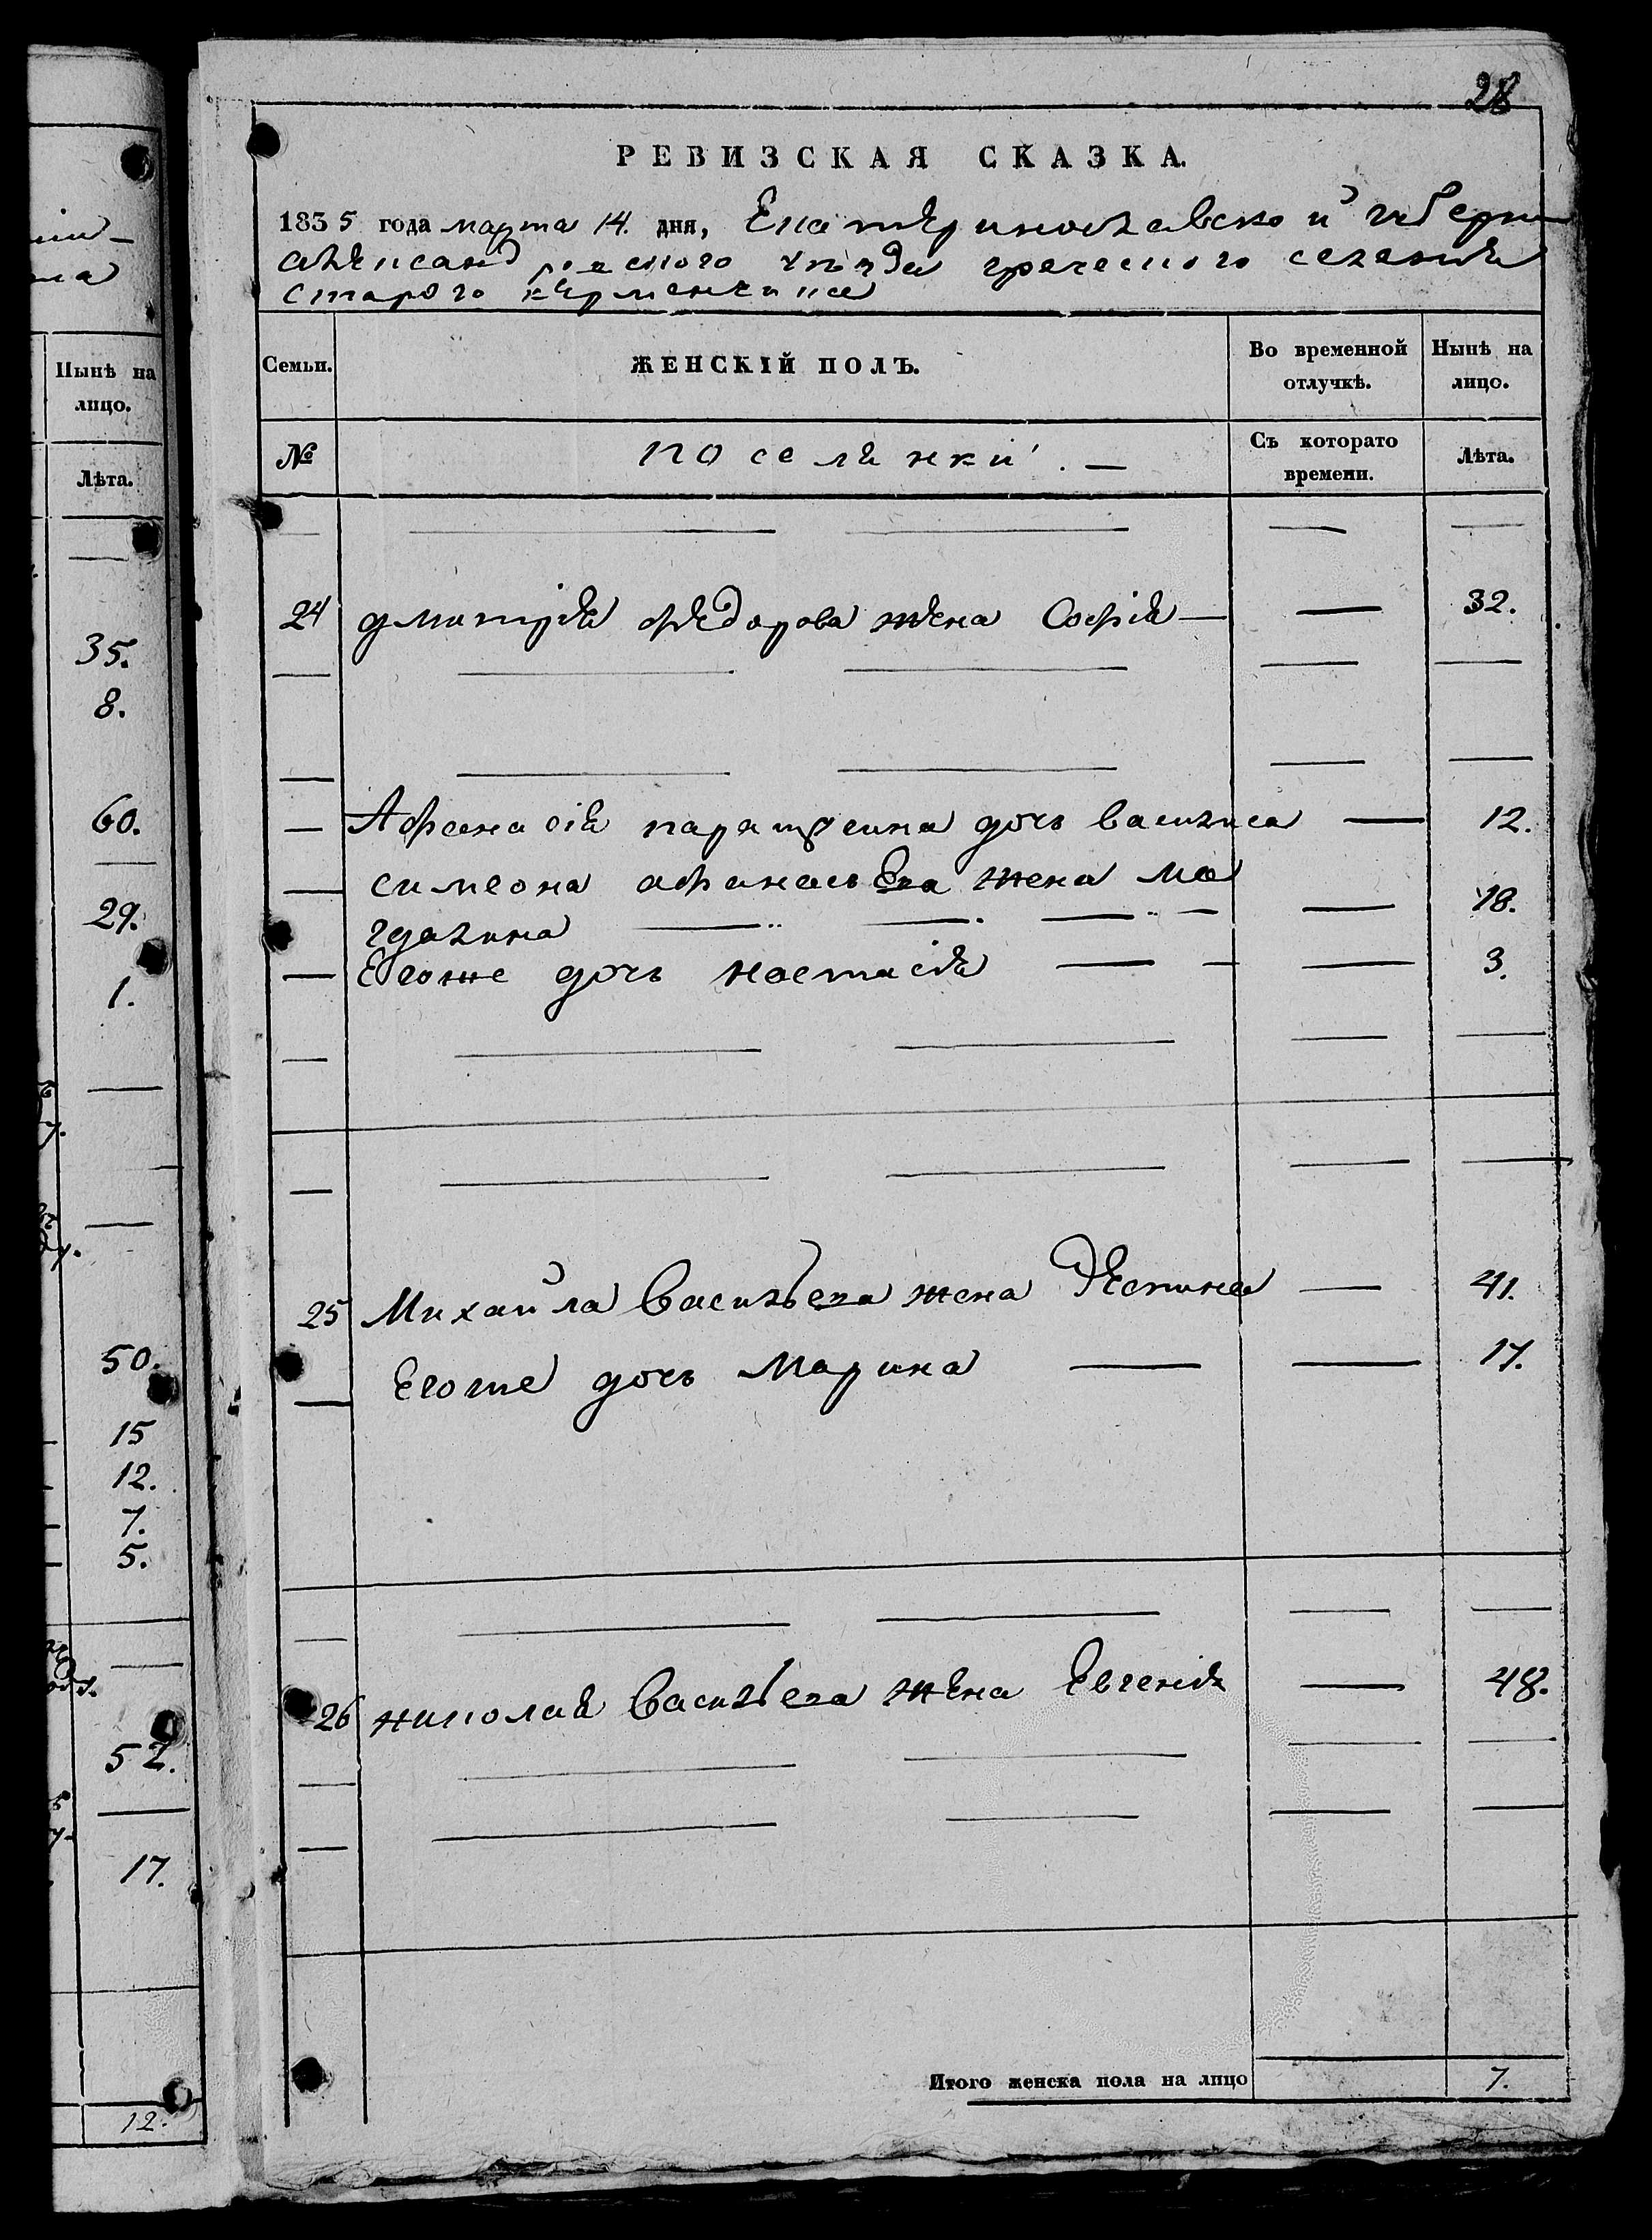 28
РЕВИЗСКАЯ СКАЗКА.
1835 года марта 14. дня, Екатериновлавской губерни
александровского уезда греческого селения
старого керменчика
Семьи.
ЖЕНСКІЙ ПОЛЪ.
Во временной отлучкѣ.
Нынѣ на лицо.
№
поселянки. —
Съ которато времени.
Лѣта.
24 дмитрія федорова жена Софія — — 32.
— Афанасія дочь василиса — 12.
— симеона афанасьева жена ма
гдалина — — — — — 18.
— Егоже дочь настасія — — — 3.
25 Михайла Васильева жена Деспина — 41.
— Егоже дочь Марина — — 17.
26 николая Васильева жена Евгенія — 48.
Итого женска пола на лицо 7.
Нынѣ на
лицо.
Лѣта.
—
35.
8.
60.
—
29.
1.
—
—
—
50.
15
12.
7.
5.
—
52.
—
17.
12.